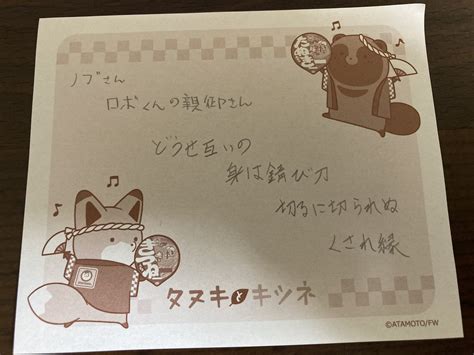 ノブさん
ロボくんの親御さん
どうせ互いの
身は錆び刀
切るに切られぬ
くされ縁
たぬき
きつね
タヌキとキツネ
©ATAMOTO/FW